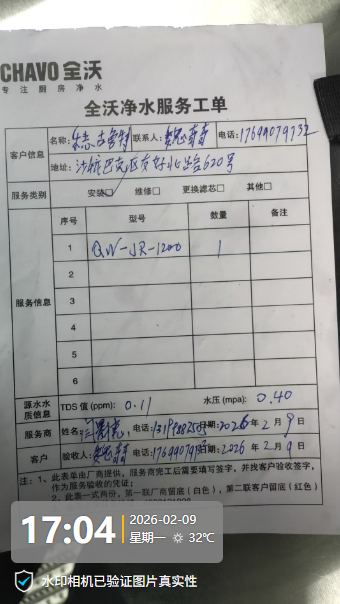 CHAVO 全沃
专注厨房净水
全沃净水服务工单
客户信息
名称: 联系人: 电话: 17699079732
地址: 沙依巴克区友好北路620号
服务类别 安装□ 维修□ 更换滤芯□ 其他□
服务信息
序号 型号 数量 备注
1 QW-JR-1200 1
2
3
4
5
6
源水水质信息 TDS 值 (ppm): 0.11 水压 (mpa): 0.40
服务商 姓名: 电话: 日期: 2026 年 2 月 9 日
客户 验收人: 电话: 日期: 2026 年 2 月 9 日
注: 1、此表单由厂商提供, 服务商完工后需要填写签字, 并找客户验收签字,
作为服务验收的凭证;
2、此表一式两份, 第一联厂商留底 (白色), 第二联客户留底 (红色)
17:04
2026-02-09
星期一 32℃
水印相机已验证图片真实性